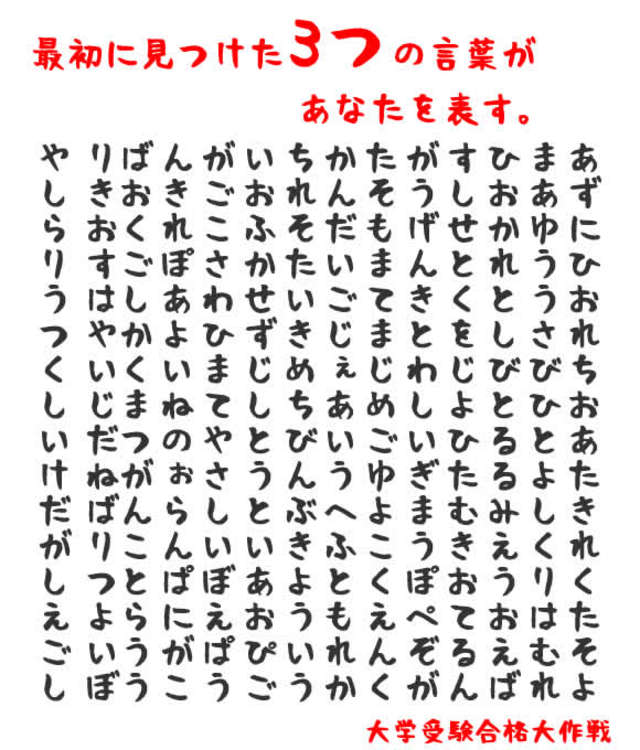 最初に見つけた3つの言葉が
あなたを表す。
あずにひおれちおあたきれくたそよ
まあゆううさびひとよしくりはむれ
ひおかれとしびとるるみえうおえば
すしせとくをじよひたむきおてるん
がうげんきとわしいぎまうぽぺぞが
たそもまてまじめごゆよこくえんく
かんだいごじぇあいうへふともれか
ちれそたいきめちびんぶきよういう
いおふかせずじしとうといあおぴご
がごこさわひまてやさしいぼえぱう
んきれぽあよいねのぉらんぱにがこ
ばおくごしかくまつがんことらうう
りきおすはやいじだねばりつよいぼ
やしらりうつくしいけだがしえごし
大学受験合格大作戦